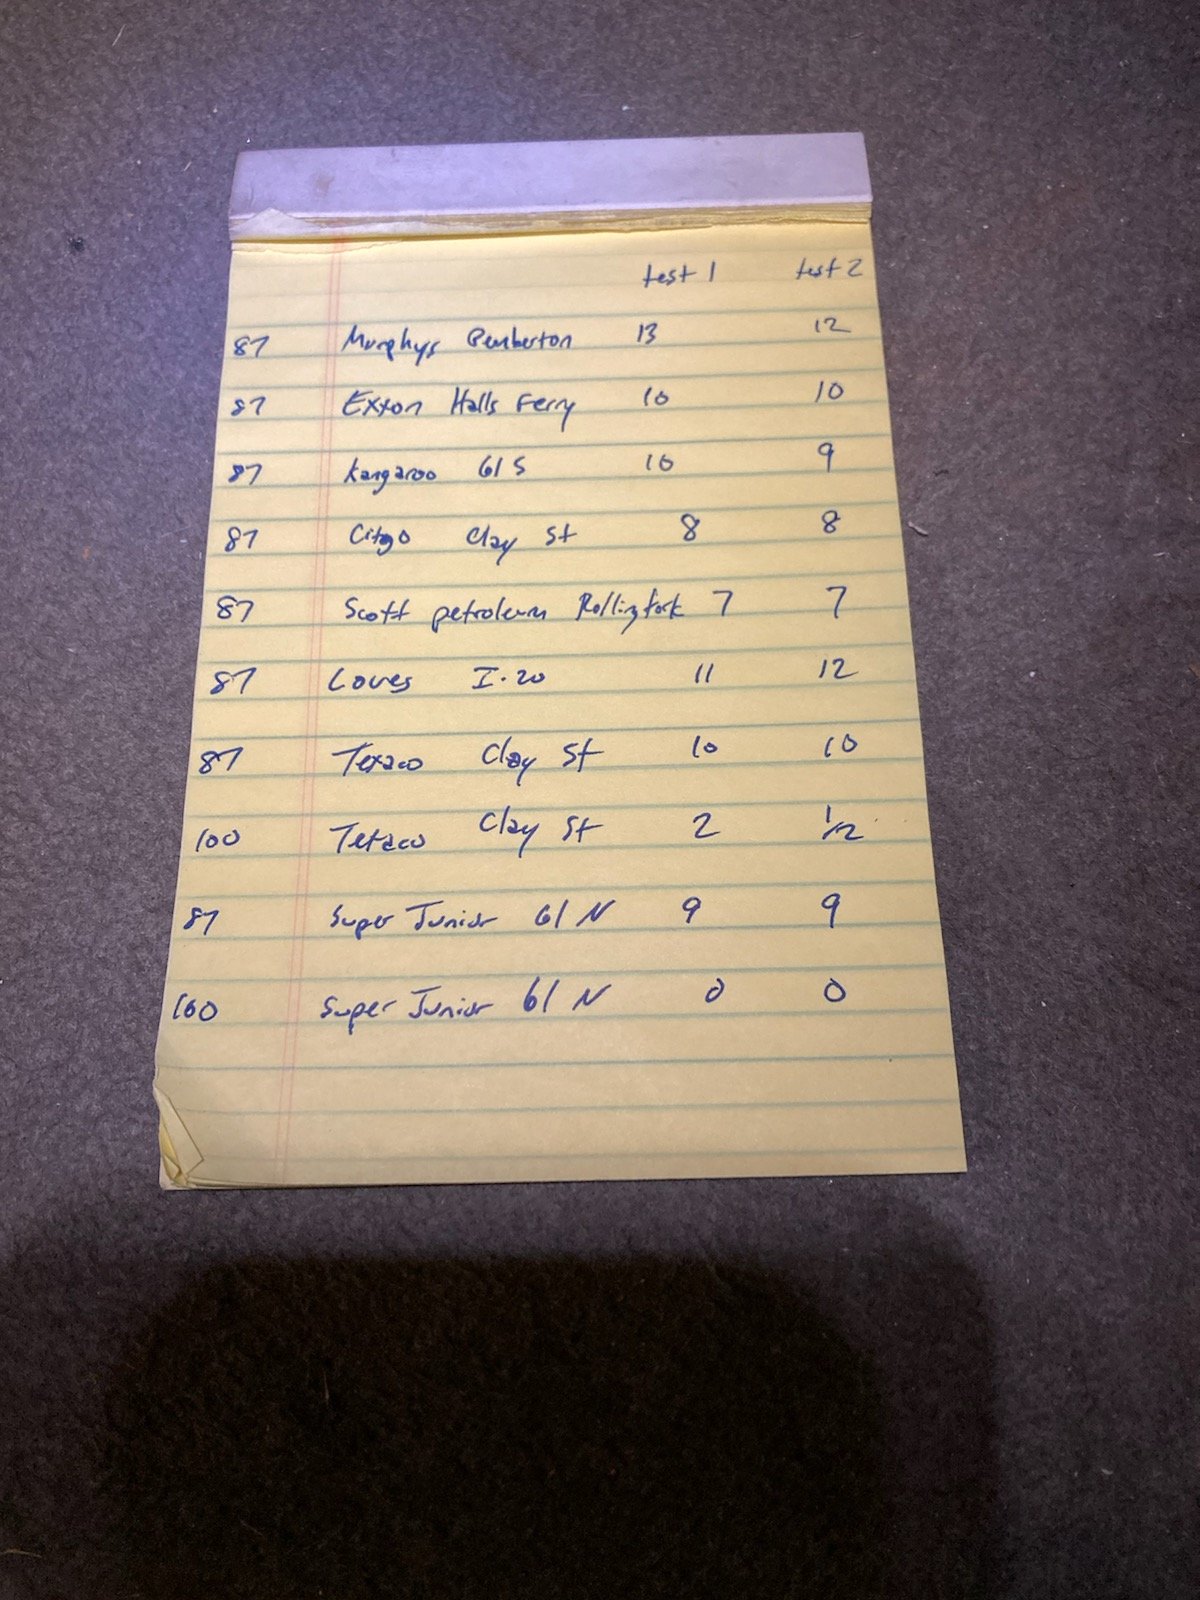 test 1 test 2
87 Murphys Pemberton 13 12
87 Exxon Halls Ferry 10 10
87 Kangaroo 61 S 10 9
87 Citgo Clay St 8 8
87 Scott petroleum Rolling fork 7 7
87 Loves I-20 11 12
87 Texaco Clay St 10 10
100 Texaco Clay St 2 1/2
87 Super Junior 61 N 9 9
100 Super Junior 61 N 0 0